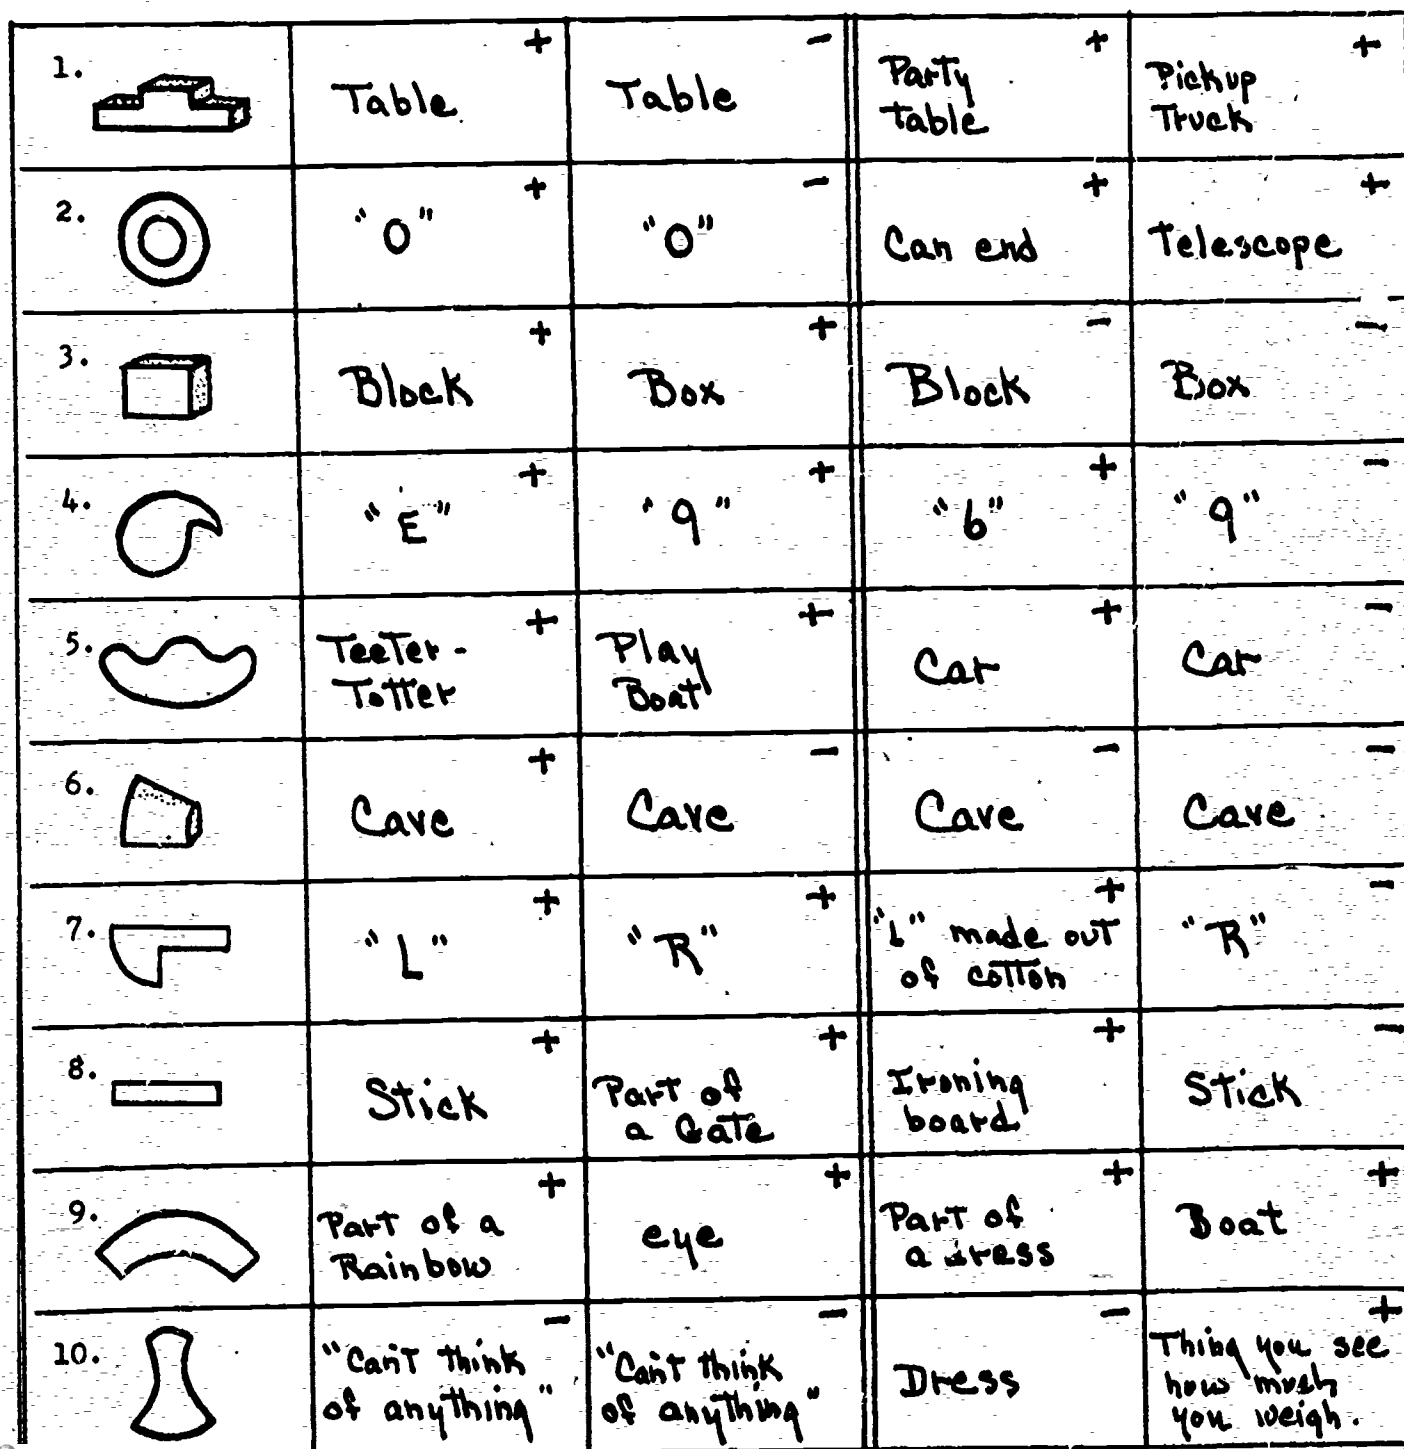 1. Table + Table - Party Table + Pickup Truck +
2. "O" + "O" - Can end + Telescope +
3. Block + Box + Block - Box -
4. "E" + "9" + "6" + "9" -
5. Teeter-Totter + Play Boat + Car + Car -
6. Cave + Cave - Cave - Cave -
7. "L" + "R" + "L" made out of cotton + "R" -
8. Stick + Part of a Gate + Ironing board + Stick -
9. Part of a Rainbow + eye + Part of a dress + Boat +
10. "Can't think of anything" - "Can't think of anything" - Dress - Thing you see how much you weigh. +